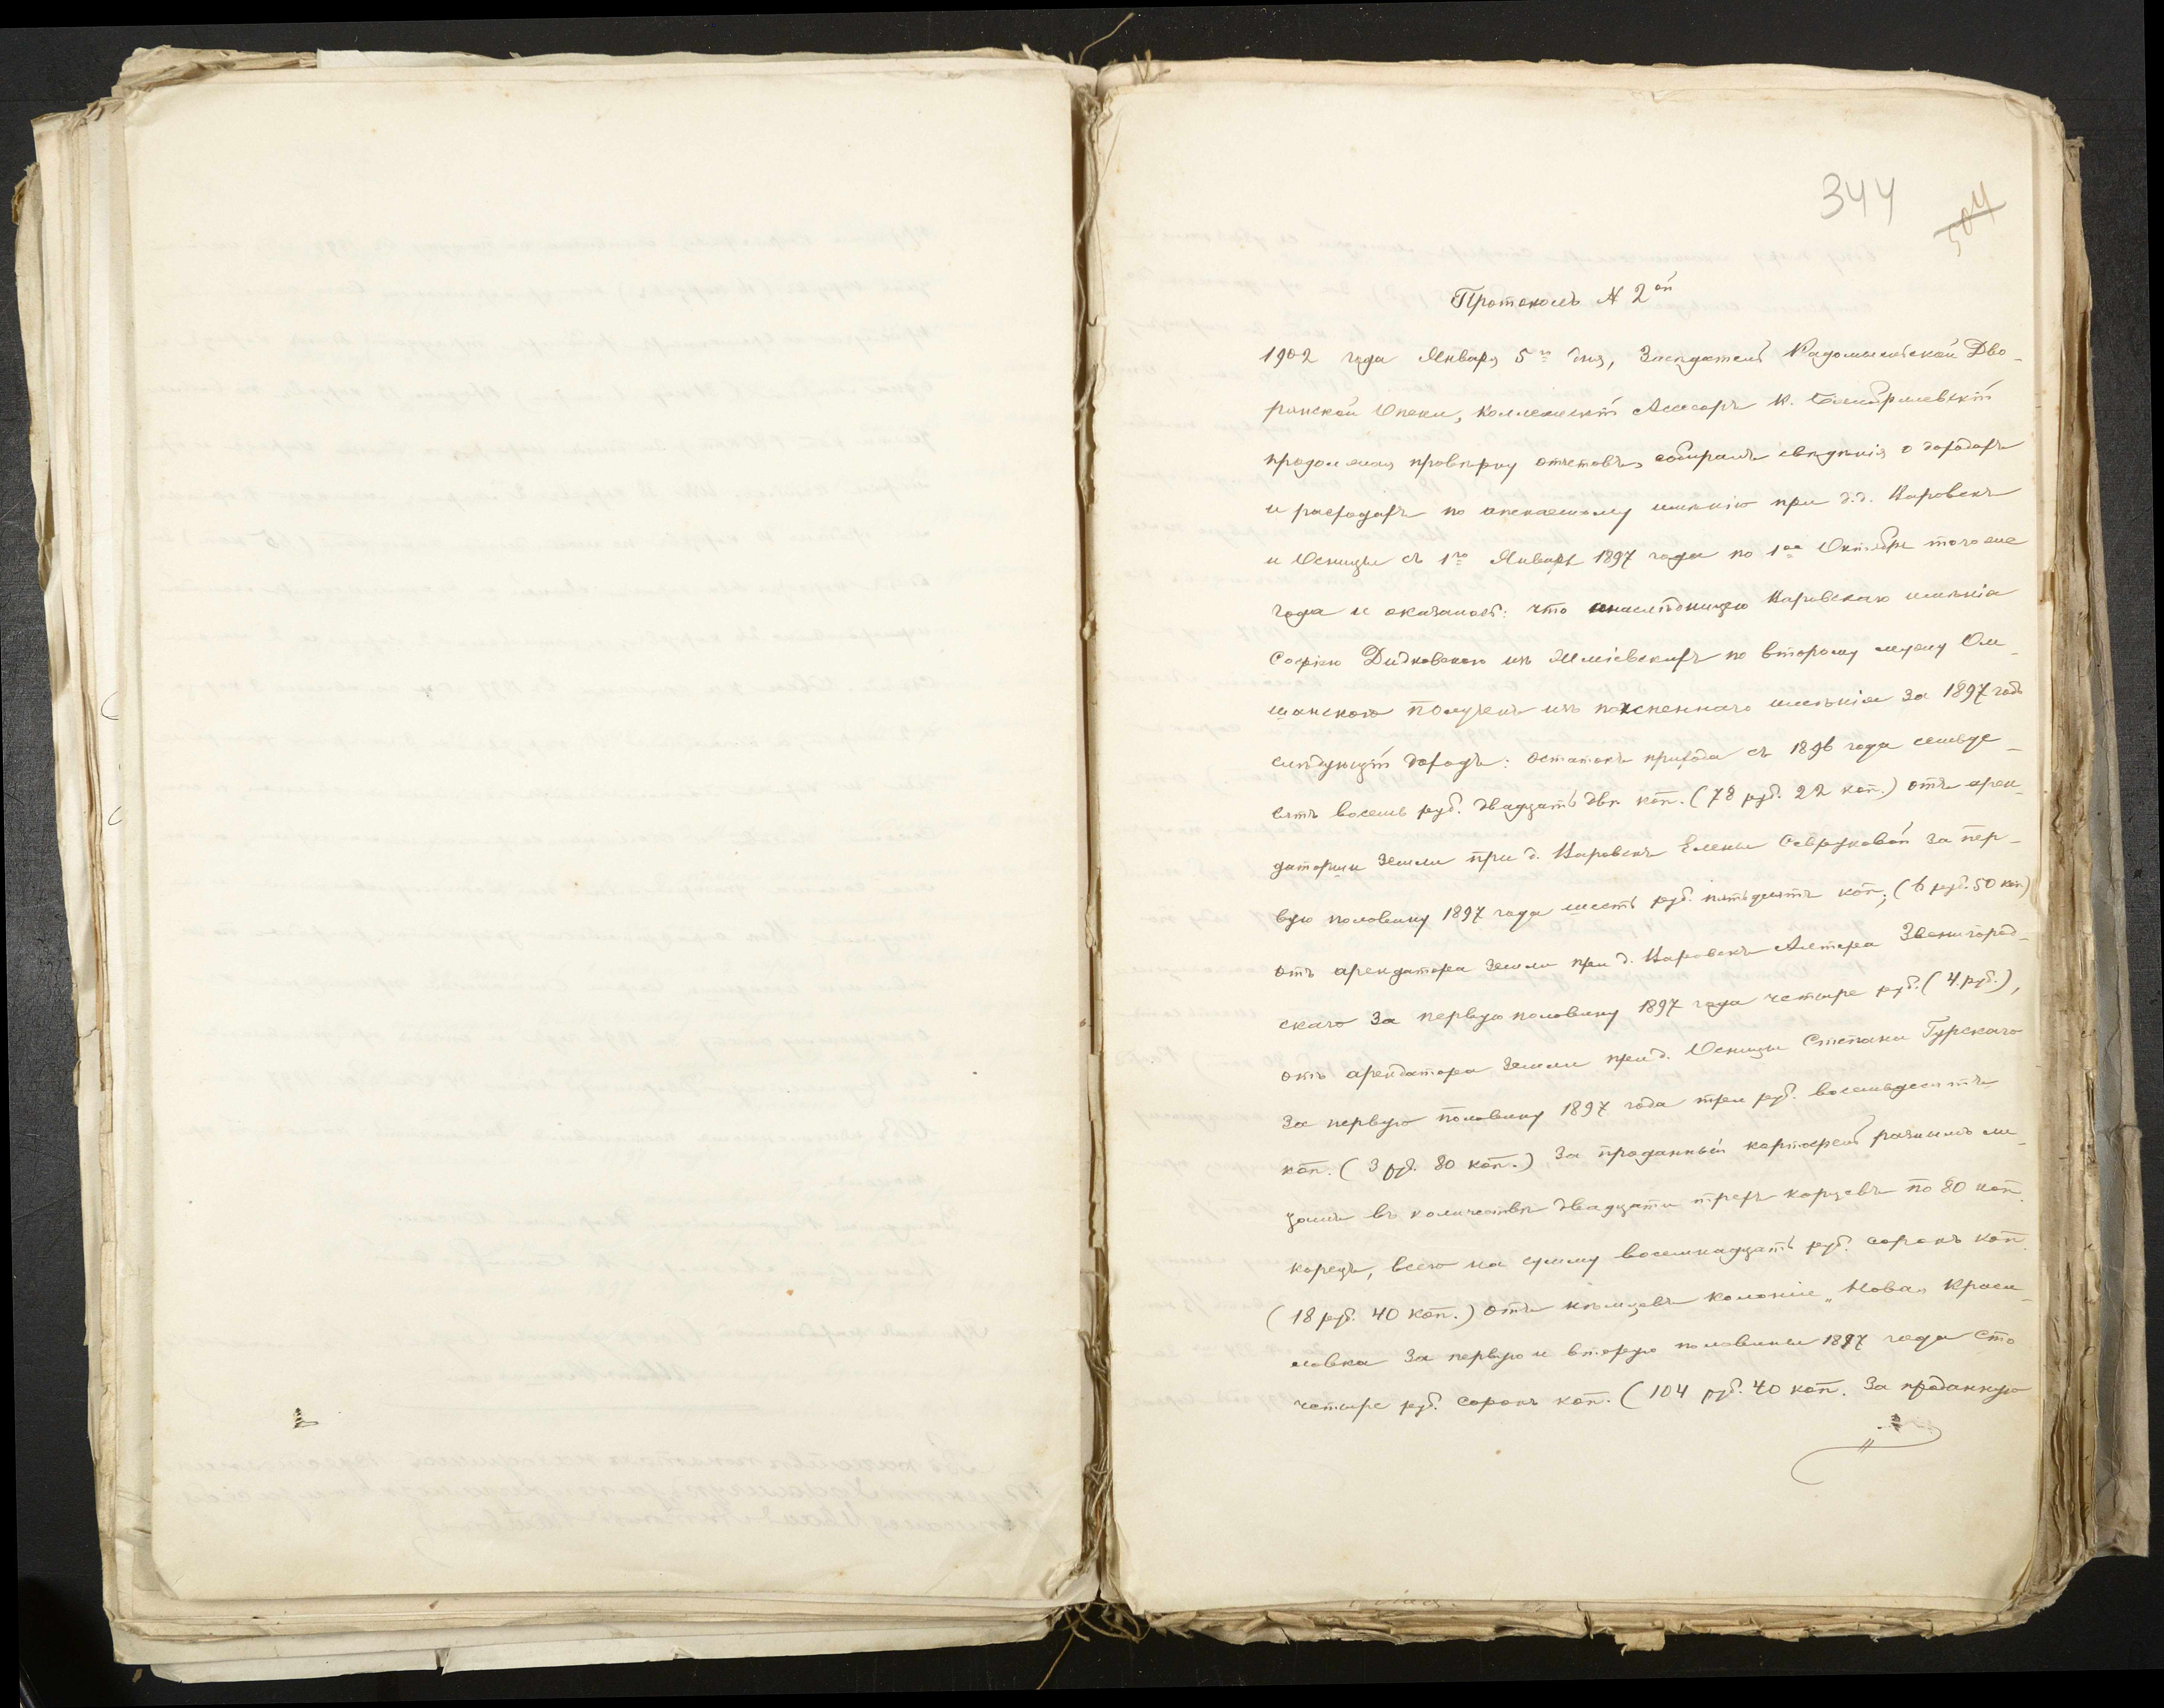 344
504
Протоколъ № 2ой
1902 года Января 5го дня, Засѣдатель Радомысльской Дво-
рянской Опеки, Коллежскій Ассесоръ К.
продолжая провѣрку отчетовъ, собиралъ свѣдѣнія о доходахъ
и расходахъ по опекаемому имѣнію при д.д. Каровкѣ
и Осницы съ 1го Января 1897 года по 1ое Октября того же
года и оказалось: что наслѣдницею Каровскаго имѣнія
Софіею Дидковскою изъ Жміевскихъ по второму мужу Ом-
шанскою полученъ изъ поясненнаго имѣнія за 1897 годъ
слѣдующій доходъ: остатокъ прихода съ 1896 года семьде-
сятъ восемь руб. двадцать двѣ коп. (78 руб. 22 коп.) отъ арен-
даторши земли при д. Каровкѣ Елены Севруковой за пер-
вую половину 1897 года шесть руб. пятьдесятъ коп; (6 руб. 50 коп)
отъ арендатора земли при д. Каровкѣ Алтера Звенигород-
скаго за первую половину 1897 года четыре руб. (4 руб.),
отъ арендатора земли при д. Осницы Степана Гурскаго
за первую половину 1897 года три руб. восемьдесятъ
коп. (3 руб. 80 коп.) За проданный картофель разнымъ ли-
цамъ въ количествѣ двадцати трехъ корцевъ по 80 коп.
корецъ, всего на сумму восемнадцать руб. сорокъ коп.
(18 руб. 40 коп.) отъ нѣмцевъ колоніи „Новая Краси-
ловка за первую и вторую половины 1897 года сто
четыре руб. сорокъ коп. (104 руб. 40 коп. За проданную